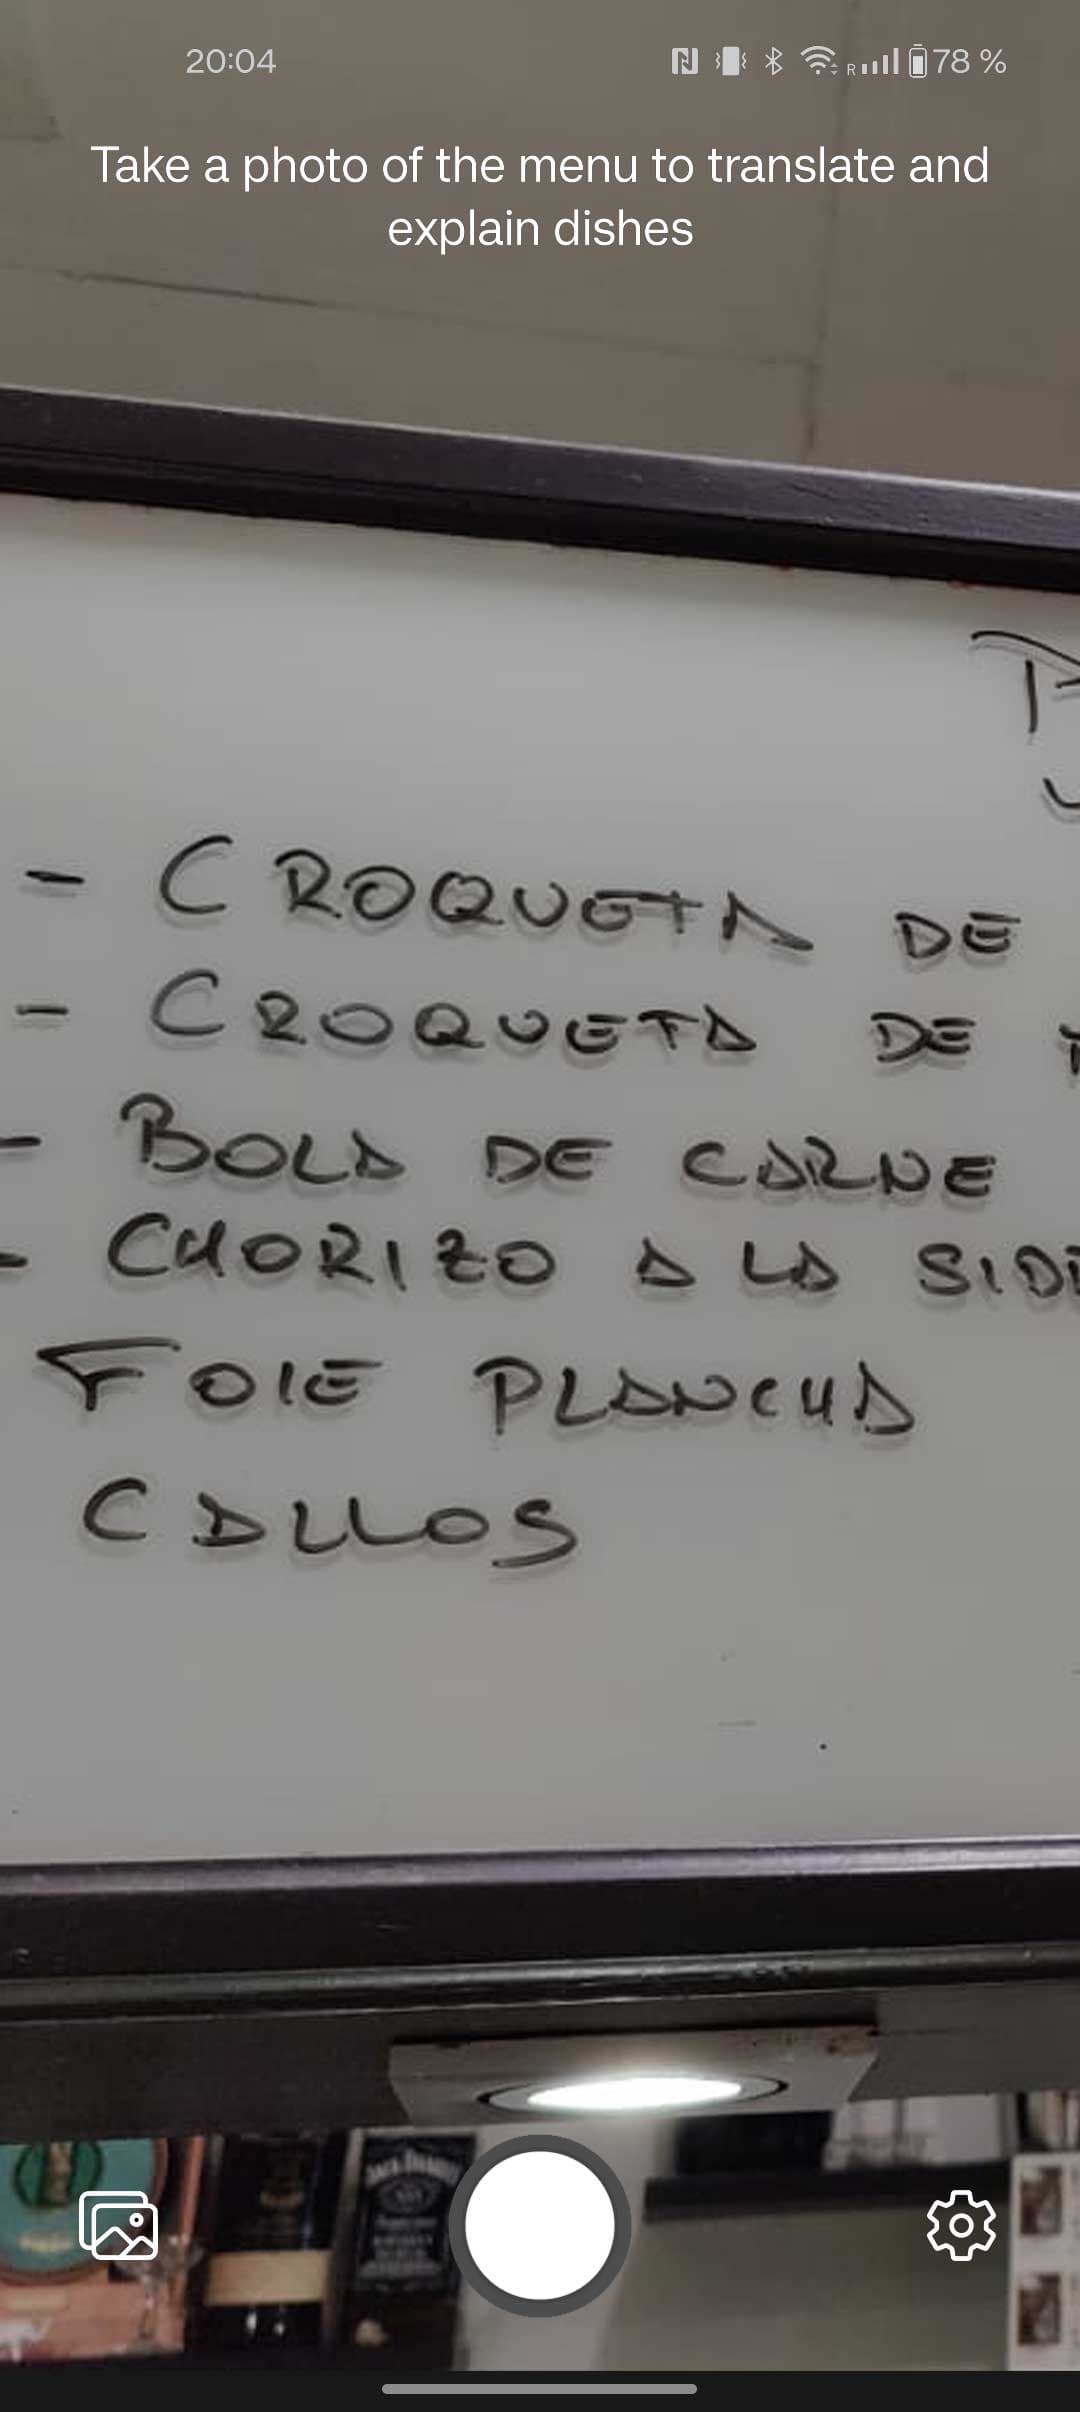 20:04
R
78 %
Take a photo of the menu to translate and
explain dishes
- CROQUETA DE
- CROQUETA DE
- BOLA DE CARNE
- CHORIZO A LA SID
FOIE PLANCHA
CALLOS
JACK DANIEL'S